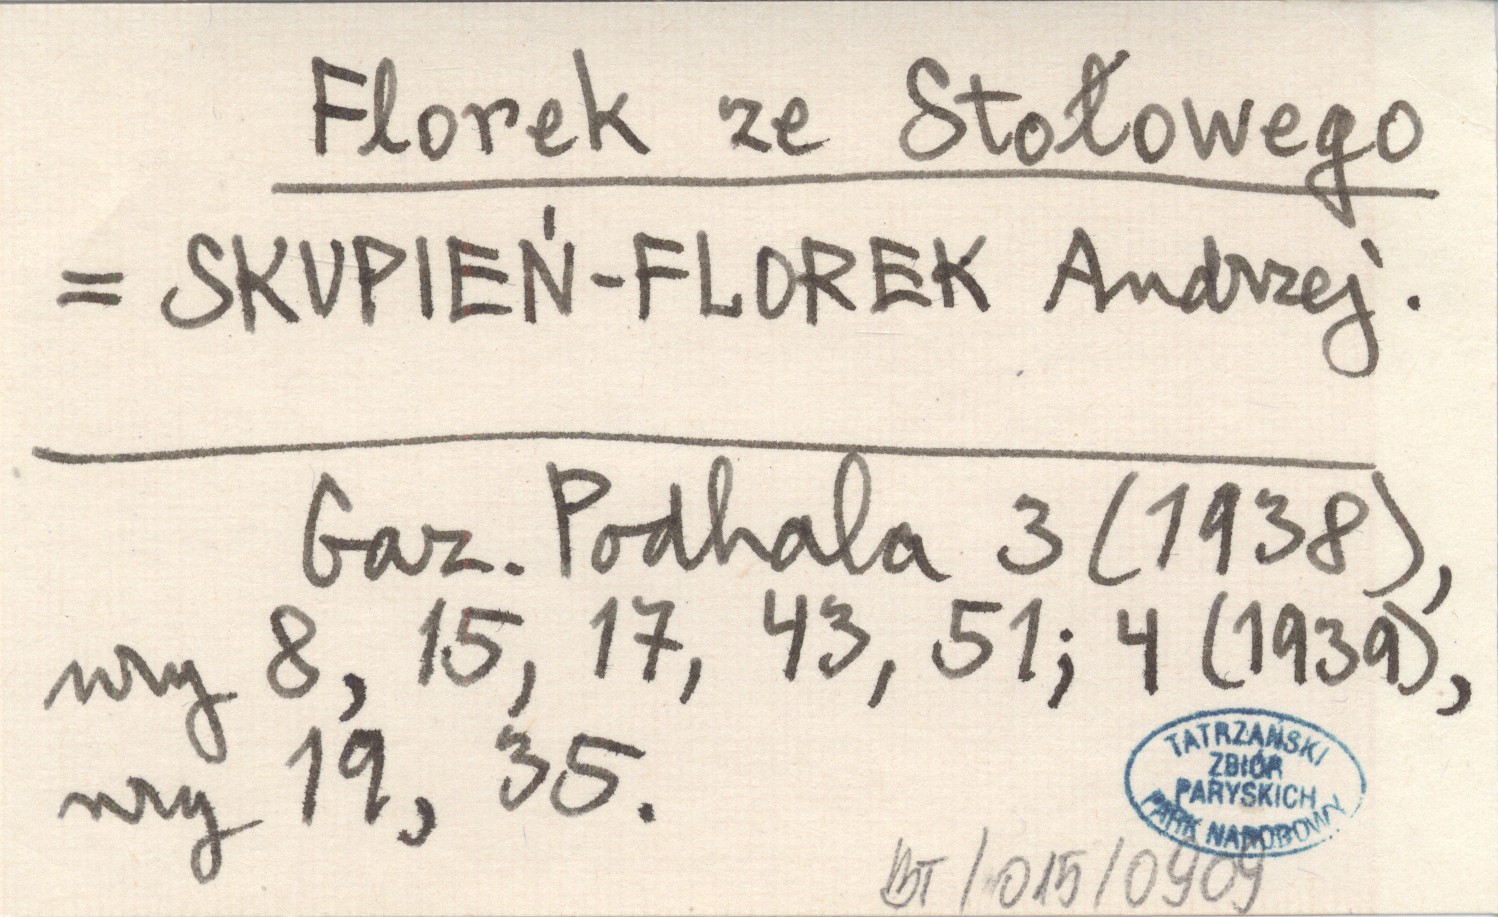 Florek ze Stołowego
= SKUPIEŃ-FLOREK Andrzej.
Gaz. Podhala 3 (1938),
nry 8, 15, 17, 43, 51; 4 (1939),
nry 19, 35.
TATRZAŃSKI
ZBIÓR
PARYSKICH
PARK NARODOWY
BT/015/0909